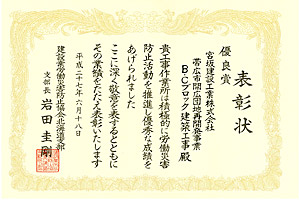 表彰状
優良賞
宮坂建設工業株式会社
帯広市開広団地再開発事業
B・Cブロック建築工事殿
貴工事作業所は積極的に労働災害
防止活動を推進し優秀な成績を
あげられました
ここに深く敬意を表するとともに
その業績をたたえ表彰いたします
平成二十七年六月十八日
建設業労働災害防止協会北海道支部
支部長 岩田圭剛